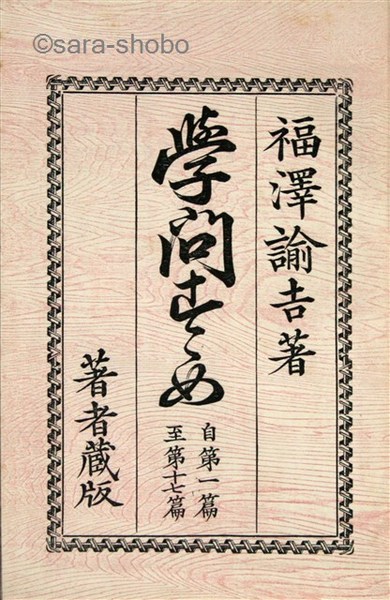 ©sara-shobo
福澤諭吉著
學問すゝめ
自第一篇
至第十七篇
著者藏版